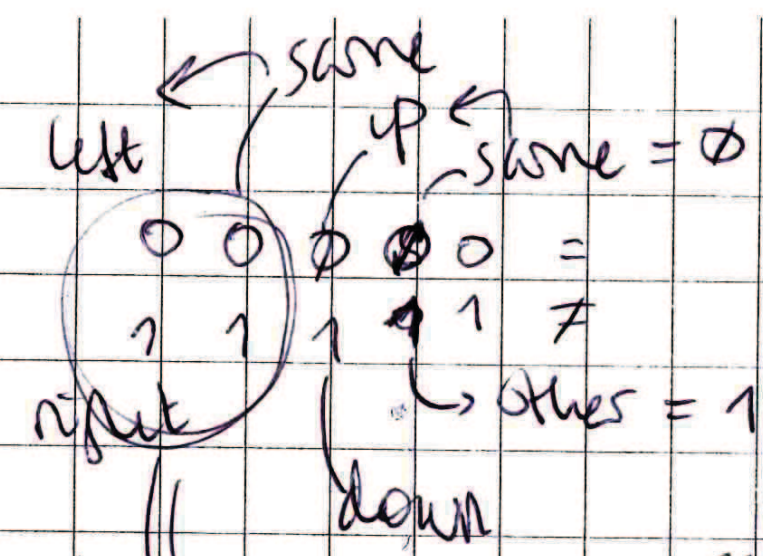 same
up
left same = Ø
0 0 0 0 0 =
1 1 1 1 1 ≠
right other = 1
down